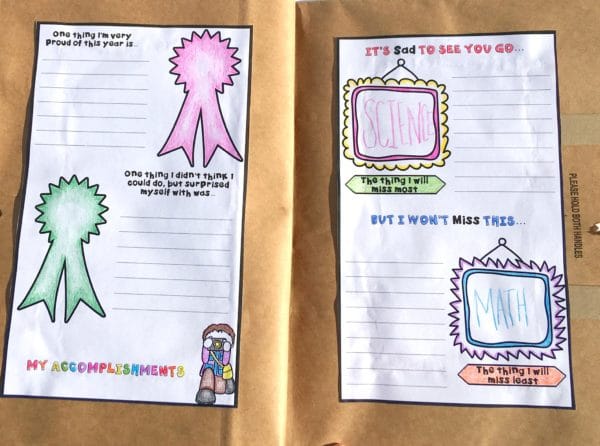 One thing I'm very
proud of this year is...
One thing I didn't think I
could do, but surprised
myself with was...
MY ACCOMPLISHMENTS
IT'S Sad TO SEE YOU GO...
SCIENCE
The thing I will
miss most
BUT I WON'T Miss THIS...
MATH
The thing I will
miss least
PLEASE HOLD BOTH HANDLES